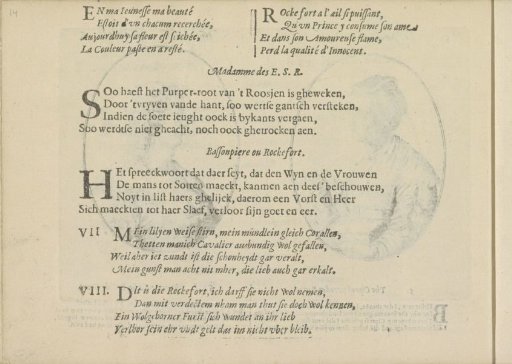 14
EN ma Ieunesse ma beauté
Estoit d'un chacum recerchée,
Aujourdhuy sa fleur est seichée,
La Couleur passe en a resté.
ROche fort a l'ail si puissant,
Qu'un Prince y consume son ame
Et dans son Amoureuse flame,
Perd la qualité d'Innocent.
Madamme des E. S. R.
SOo haest het Purper-root van 't Roosjen is gheweken,
Door 't vryven vande hant, soo wertse gantsch versteken,
Indien de soete ieught oock is bykants vergaen,
Soo werdtse niet gheacht, noch oock ghetrocken aen.
Bassonpiere ou Rochefort.
HEt spreeckwoort dat daer seyt, dat den Wyn en de Vrouwen
De mans tot Sotten maeckt, kanmen aen dees' beschouwen,
Noyt in list haers ghelijck, daerom een Vorst en Heer
Sich maeckten tot haer Slaef, verloor sijn goet en eer.
VII MEin lilyen weisse stirn, mein mündlein gleich Corallen,
Thetten manich Cavalier ausbundig wol gefallen,
Weil aber iet zundt ist die schonheydt gar veralt,
Mein gunst man acht nit mher, die lieb auch gar erkalt.
VIII. DIt is die Rochefort, ich darff sie nicht wol nemen,
Dan mit verdecktem nham man thut sie doch wol kennen,
Ein Wolgeborner Furst sich wundet an ihr lieb
Verlhor sein ehr undt gelt das im nicht uber bleib.